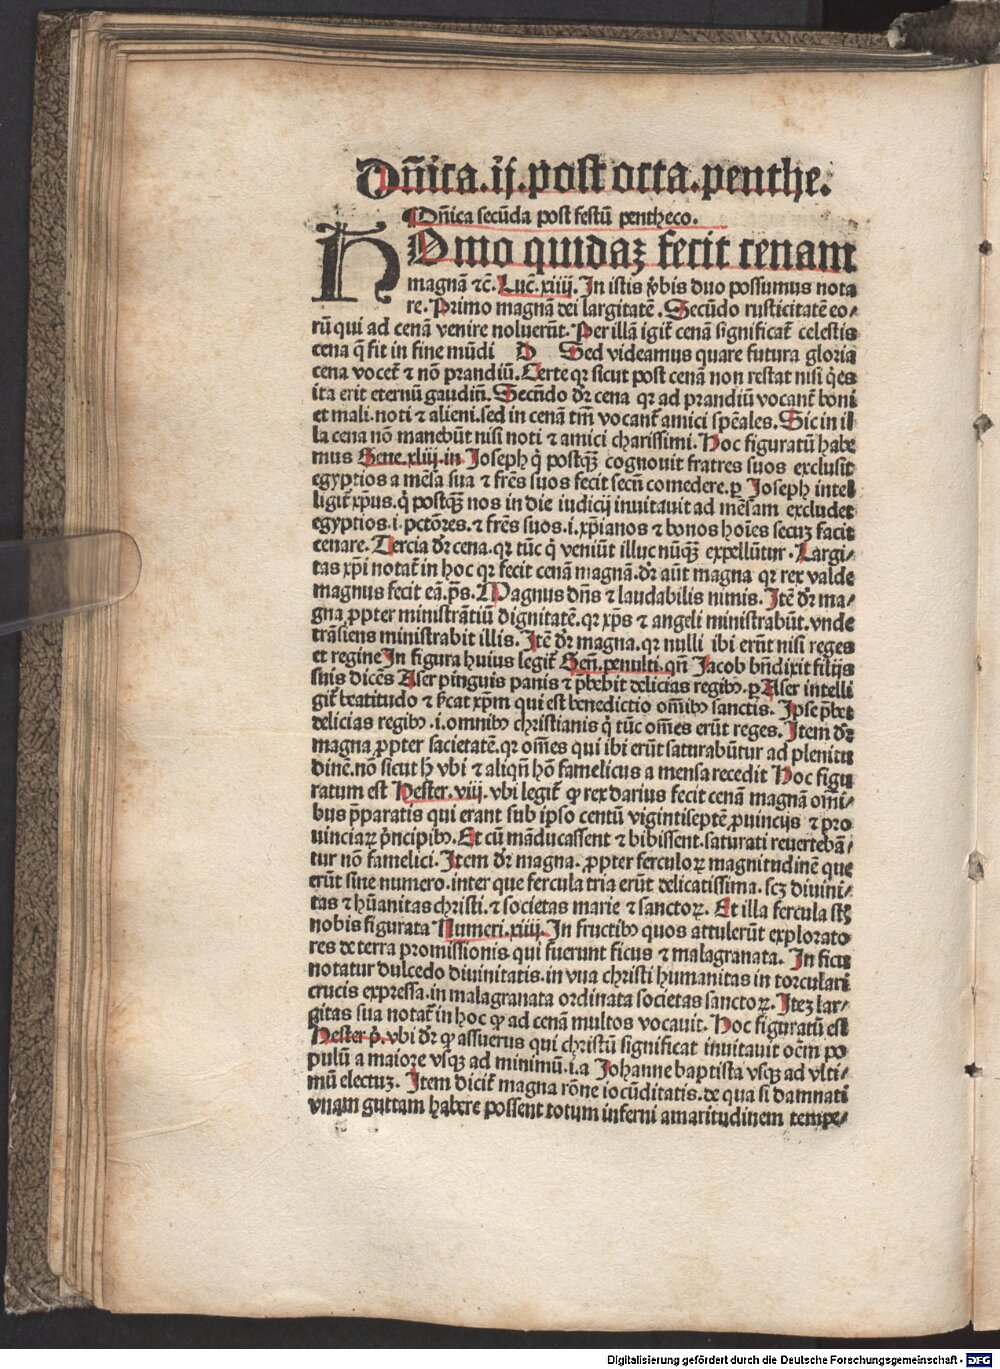 Dñica.ij.post octa.penthe.
Dñica secũda post festũ pentheco.
HOmo quidaȝ fecit cenam
magnã ⁊c̃. Luc̃.xiiij. In istis v̾bis duo possumus nota
re. Primo magnã dei largitatẽ. Secũdo rusticitatẽ eo⸗
rũ qui ad cenã venire noluerũt. Per illã igit̃ cenã significat̃ celestis
cena q̃ fit in fine mũdi D Sed videamus quare futura gloria
cena vocet̃ ⁊ nõ prandiũ. Certe qꝛ sicut post cenã non restat nisi q̇es
ita erit eternũ gaudiũ. Secũdo dr̃ cena qꝛ ad prandiũ vocant̃ boni
et mali. noti ⁊ alieni. sed in cenã tm̃ vocant̃ amici spẽales. Sic in il
la cena nõ manebũt nisi noti ⁊ amici charissimi. Hoc figuratũ habe
mus Gene.xliij.in Joseph q̇ postqȝ̃ cognouit fratres suos exclusit
egyptios a mẽsa sua ⁊ fr̃es suos fecit secũ comedere. ꝑ Joseph intel
ligit̃ xp̃us. q̇ postqȝ̃ nos in die iudicij inuitauit ad mẽsam excludet
egyptios .i. pctõres. ⁊ fr̃es suos .i. xp̃ianos ⁊ bonos hoĩes secuȝ facit
cenare. Tercia dr̃ cena. qꝛ tũc q̇ veniũt illuc nũqȝ̃ expellũtur. Largi⸗
tas xp̃i notat̃ in hoc qꝛ fecit cenã magnã. dr̃ aũt magna qꝛ rex valde
magnus fecit eã. p̃s. Magnus dñs ⁊ laudabilis nimis. Itẽ dr̃ ma⸗
gna ꝓpter ministrãtiũ dignitatẽ. qꝛ xp̃s ⁊ angeli ministrabũt. vnde
trãsiens ministrabit illis. Itẽ dr̃ magna. qꝛ nulli ibi erũt nisi reges
et regine In figura huius legit̃ Geñ.penulti. qñ Jacob bñdixit filijs
suis dicẽs Aser pinguis panis ⁊ p̃bebit delicias regibꝰ. ꝑ Aser intelli
git̃ beatitudo ⁊ p̃cat xp̃m qui est benedictio om̃ibꝰ sanctis. Ipse p̃bet
delicias regibꝰ .i. omnibꝰ christianis q̇ tũc om̃es erũt reges. Item dr̃
magna ꝓpter sacietatẽ. qꝛ om̃es qui ibi erũt saturabũtur ad plenitu
dinẽ. nõ sicut h̾ vbi ⁊ aliqñ hõ famelicus a mensa recedit Hoc figu
ratum est Hester.viij. vbi legit̃ ꝙ rex darius fecit cenã magnã om̃i⸗
bus p̃paratis qui erant sub ipso centũ vigintiseptẽ ꝓuincijs ⁊ pro
uinciaꝝ p̃ncipibꝰ. Et cũ mãducassent ⁊ bibissent. saturati reuertebã⸗
tur nõ famelici. Item dr̃ magna. ꝓpter ferculoꝝ magnitudinẽ que
erũt sine numero. inter que fercula tria erũt delicatissima. scȝ diuini⸗
tas ⁊ hũanitas christi. ⁊ societas marie ⁊ sanctoꝝ. Et illa fercula st̃
nobis figurata Numeri.xiiij. In fructibꝰ quos attulerũt explorato
res de terra promissionis qui fuerunt ficus ⁊ malagranata. In ficu
notatur dulcedo diuinitatis. in vua christi humanitas in torculari
crucis expressa. in malagranata ordinata societas sanctoꝝ. Iteȝ lar⸗
gitas sua notat̃ in hoc ꝙ ad cenã multos vocauit. Hoc figuratũ est
Hester p̾. vbi dr̃ ꝙ assuerus qui christũ significat inuitauit oẽm po
pulũ a maiore vsqȝ ad minimũ .i. a Johanne baptista vsqȝ ad vlti⸗
mũ electuȝ. Item dicit̃ magna rõne iocũditatis. de qua si damnati
vnam guttam habere possent totum inferni amaritudinem tempe⸗
Digitalisierung gefördert durch die Deutsche Forschungsgemeinschaft - DFG